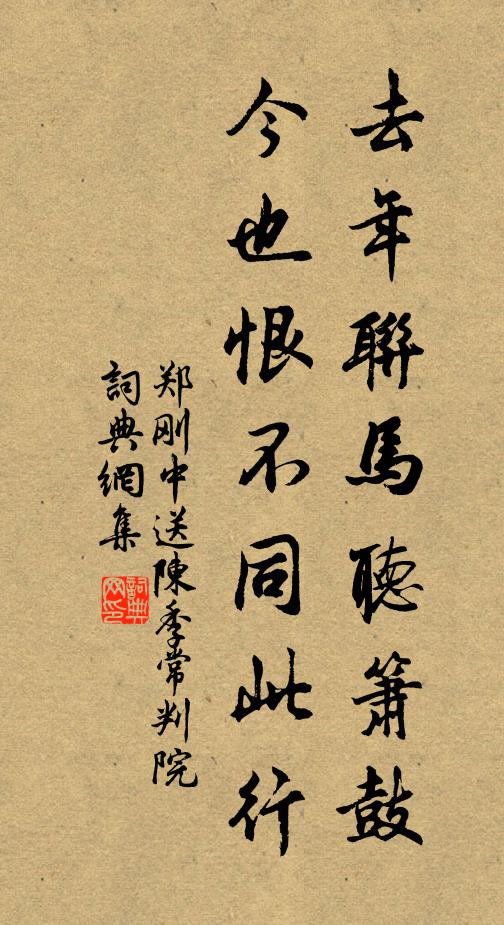 去年聯馬聴簫鼓
今也恨不同此行
郑刚中送陳季常判院
詞典網集
詞典网印